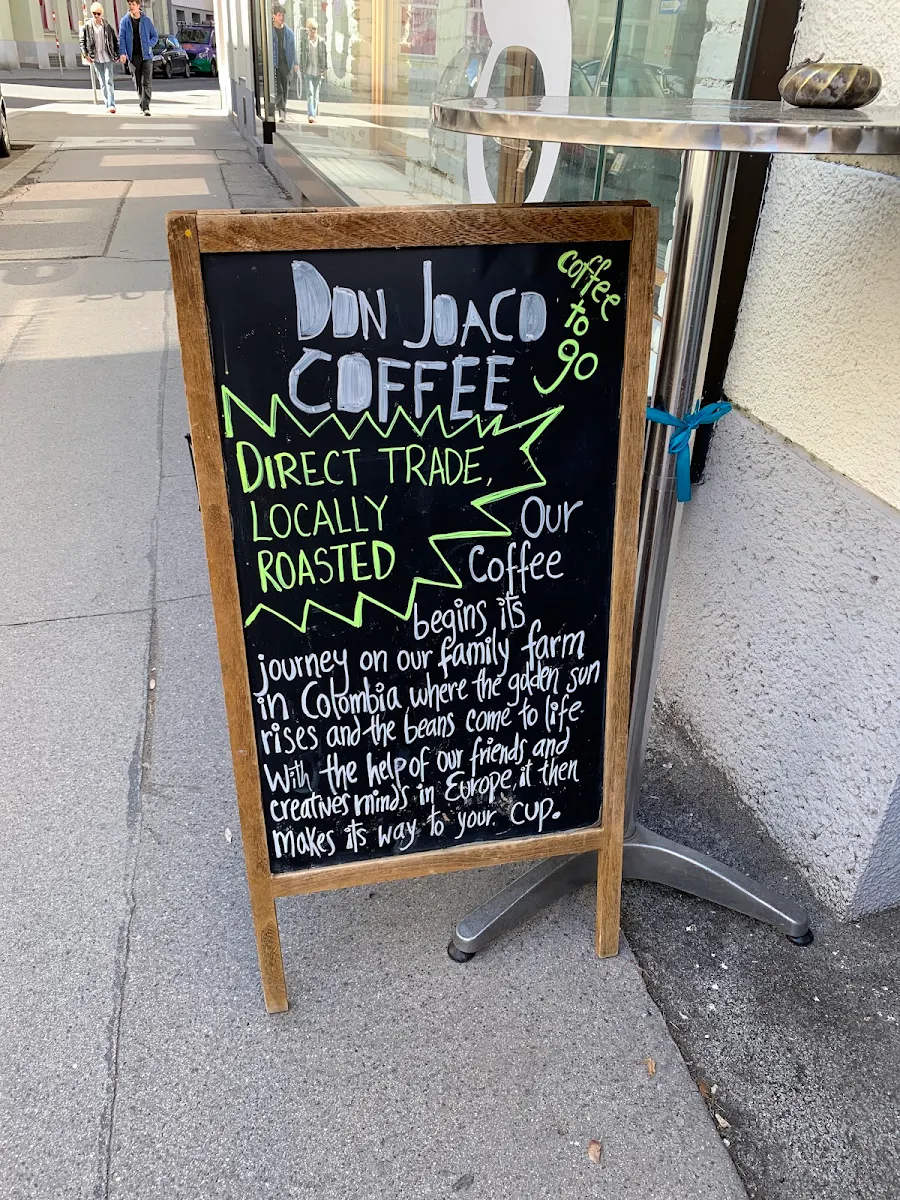 DON JOACO
COFFEE
coffee
to
go
DIRECT TRADE,
LOCALLY
ROASTED
Our
Coffee
begins its
journey on our family farm
in Colombia where the golden sun
rises and the beans come to life.
With the help of our friends and
creatives minds in Europe, it then
makes its way to your cup.